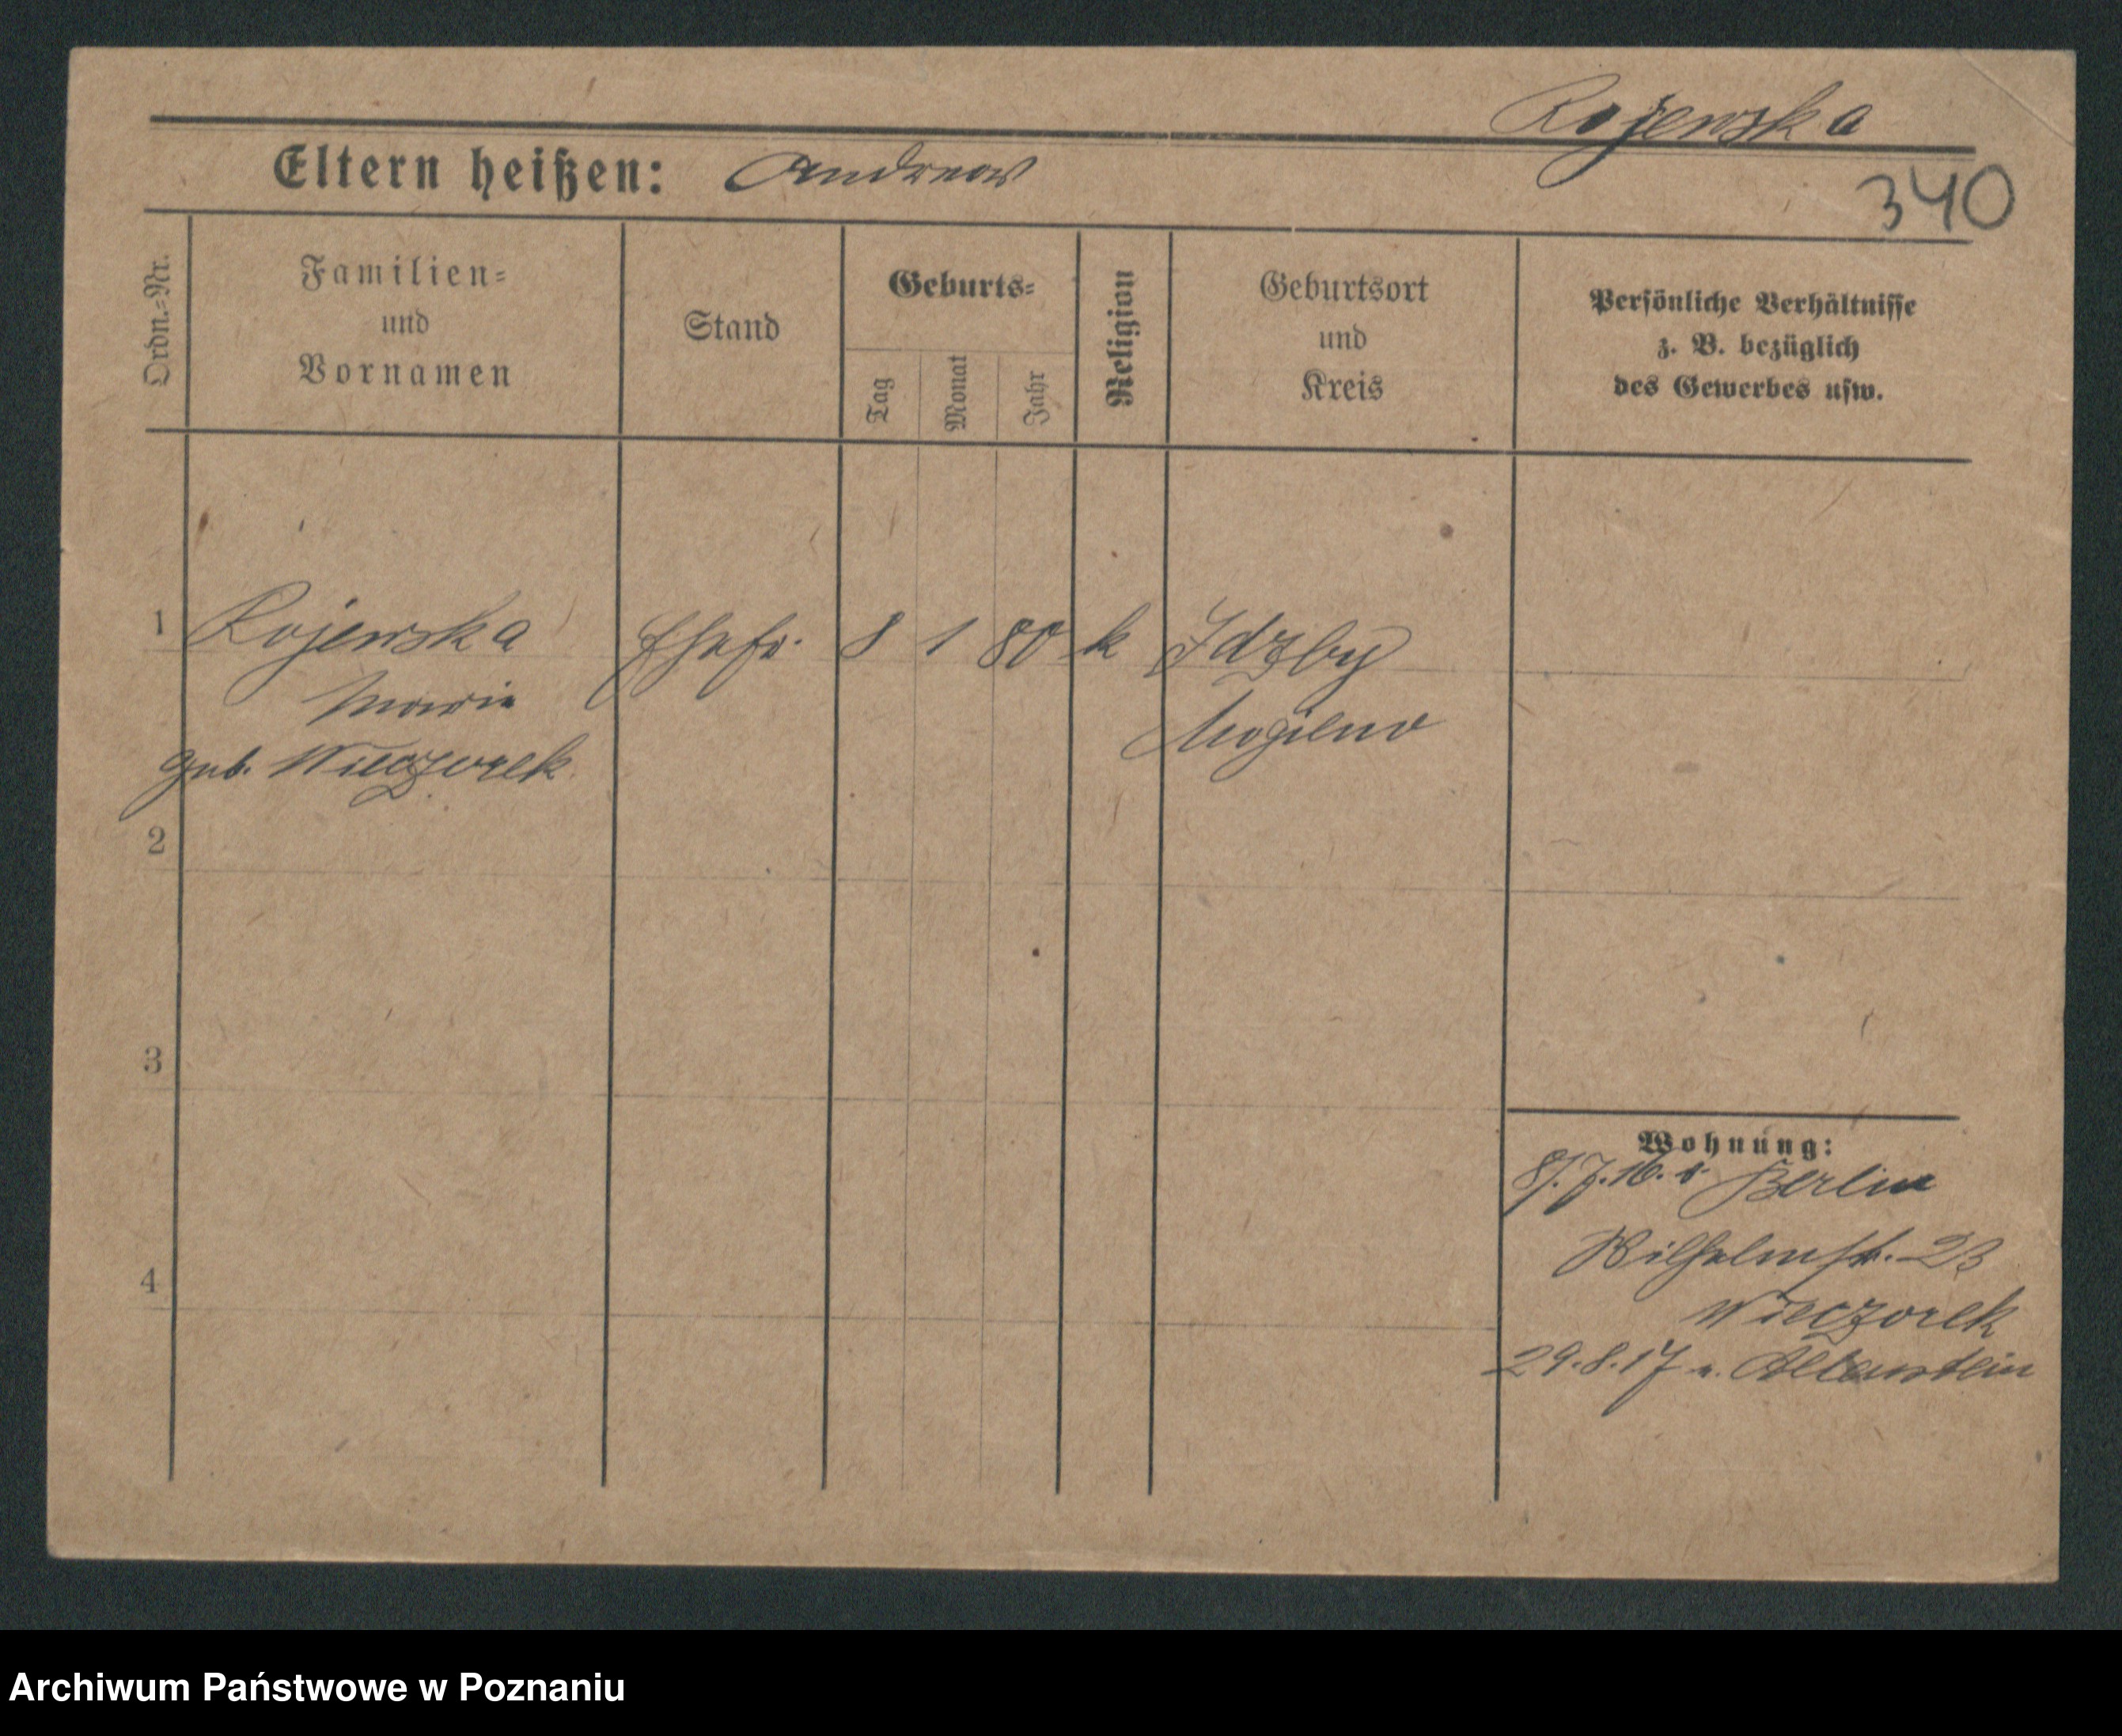 Rojewska
Eltern heißen: Andreas
340
Ordn.=Nr.
Familien=
und
Vornamen
Stand
Geburts=
Tag
Monat
Jahr
Religion
Geburtsort
und
Kreis
Persönliche Verhältnisse
z. B. bezüglich
des Gewerbes usw.
1 Rojewska Ehefr. 8 1 80 k Idzby
Marie Mogilno
geb. Wieczorek
2
3
4
Wohnung:
8/.7.16. Berlin
Wilhelmstr. 23
Wieczorek
29.8.17 n. Allenstein
Archiwum Państwowe w Poznaniu